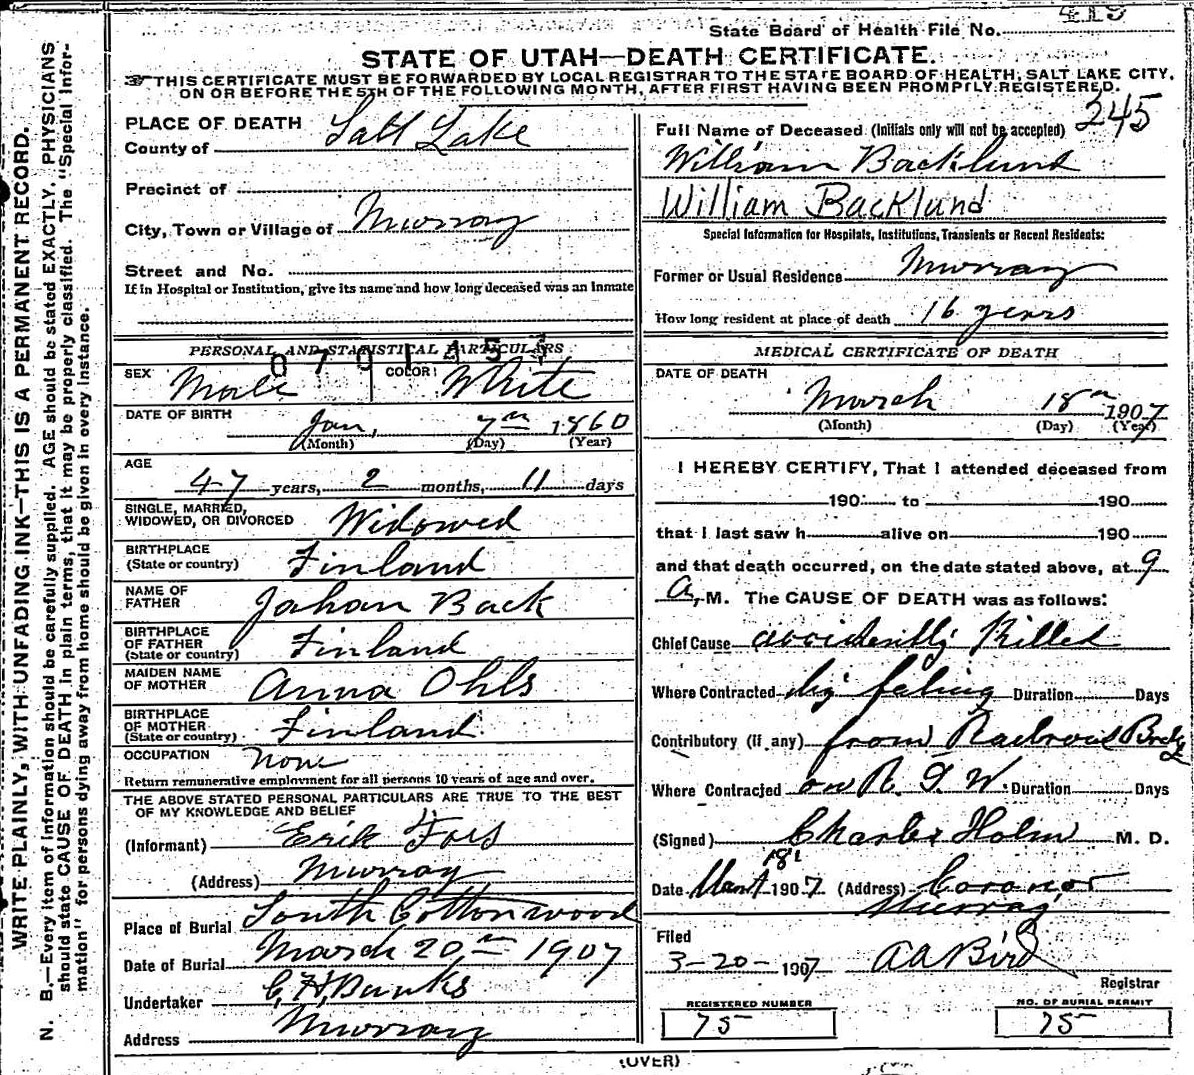 State Board of Health File No. 415
STATE OF UTAH—DEATH CERTIFICATE.
THIS CERTIFICATE MUST BE FORWARDED BY LOCAL REGISTRAR TO THE STATE BOARD OF HEALTH, SALT LAKE CITY,
ON OR BEFORE THE 5TH OF THE FOLLOWING MONTH, AFTER FIRST HAVING BEEN PROMPTLY REGISTERED.
245
PLACE OF DEATH
County of Salt Lake
Precinct of
City, Town or Village of Murray
Street and No.
If in Hospital or Institution, give its name and how long deceased was an Inmate
PERSONAL AND STATISTICAL PARTICULARS
SEX Male COLOR White
DATE OF BIRTH
Jan, 7th 1860
(Month) (Day) (Year)
AGE
47 years, 2 months, 11 days
SINGLE, MARRIED,
WIDOWED, OR DIVORCED Widowed
BIRTHPLACE
(State or country) Finland
NAME OF
FATHER Johan Back
BIRTHPLACE
OF FATHER
(State or country) Finland
MAIDEN NAME
OF MOTHER Anna Ohls
BIRTHPLACE
OF MOTHER
(State or country) Finland
OCCUPATION None
Return remunerative employment for all persons 10 years of age and over.
THE ABOVE STATED PERSONAL PARTICULARS ARE TRUE TO THE BEST
OF MY KNOWLEDGE AND BELIEF
(Informant) Erik Fors
(Address) Murray
Place of Burial South Cottonwood
Date of Burial March 20th 1907
Undertaker
Address Murray
Full Name of Deceased (Initials only will not be accepted)
William Backlund
William Backlund
Special Information for Hospitals, Institutions, Transients or Recent Residents:
Former or Usual Residence Murray
How long resident at place of death 16 years
MEDICAL CERTIFICATE OF DEATH
DATE OF DEATH
March 18th 1907
(Month) (Day) (Year)
I HEREBY CERTIFY, That I attended deceased from
190 to 190
that I last saw h alive on 190
and that death occurred, on the date stated above, at 9
A, M. The CAUSE OF DEATH was as follows:
Chief Cause accidently Killed
Where Contracted by faling Duration Days
Contributory (if any) from Railroad
Where Contracted on R. G. W. Duration Days
(Signed) Charles Holm M. D.
Date 18t 1907 (Address) Coronor
Murray
Filed
3-20- 1907 A A Bird
Registrar
REGISTERED NUMBER
75
NO. OF BURIAL PERMIT
75
(OVER)
WRITE PLAINLY, WITH UNFADING INK—THIS IS A PERMANENT RECORD.
N. B.—Every item of information should be carefully supplied. AGE should be stated EXACTLY. PHYSICIANS
should state CAUSE OF DEATH in plain terms, that it may be properly classified. The "Special Infor-
mation" for persons dying away from home should be given in every instance.